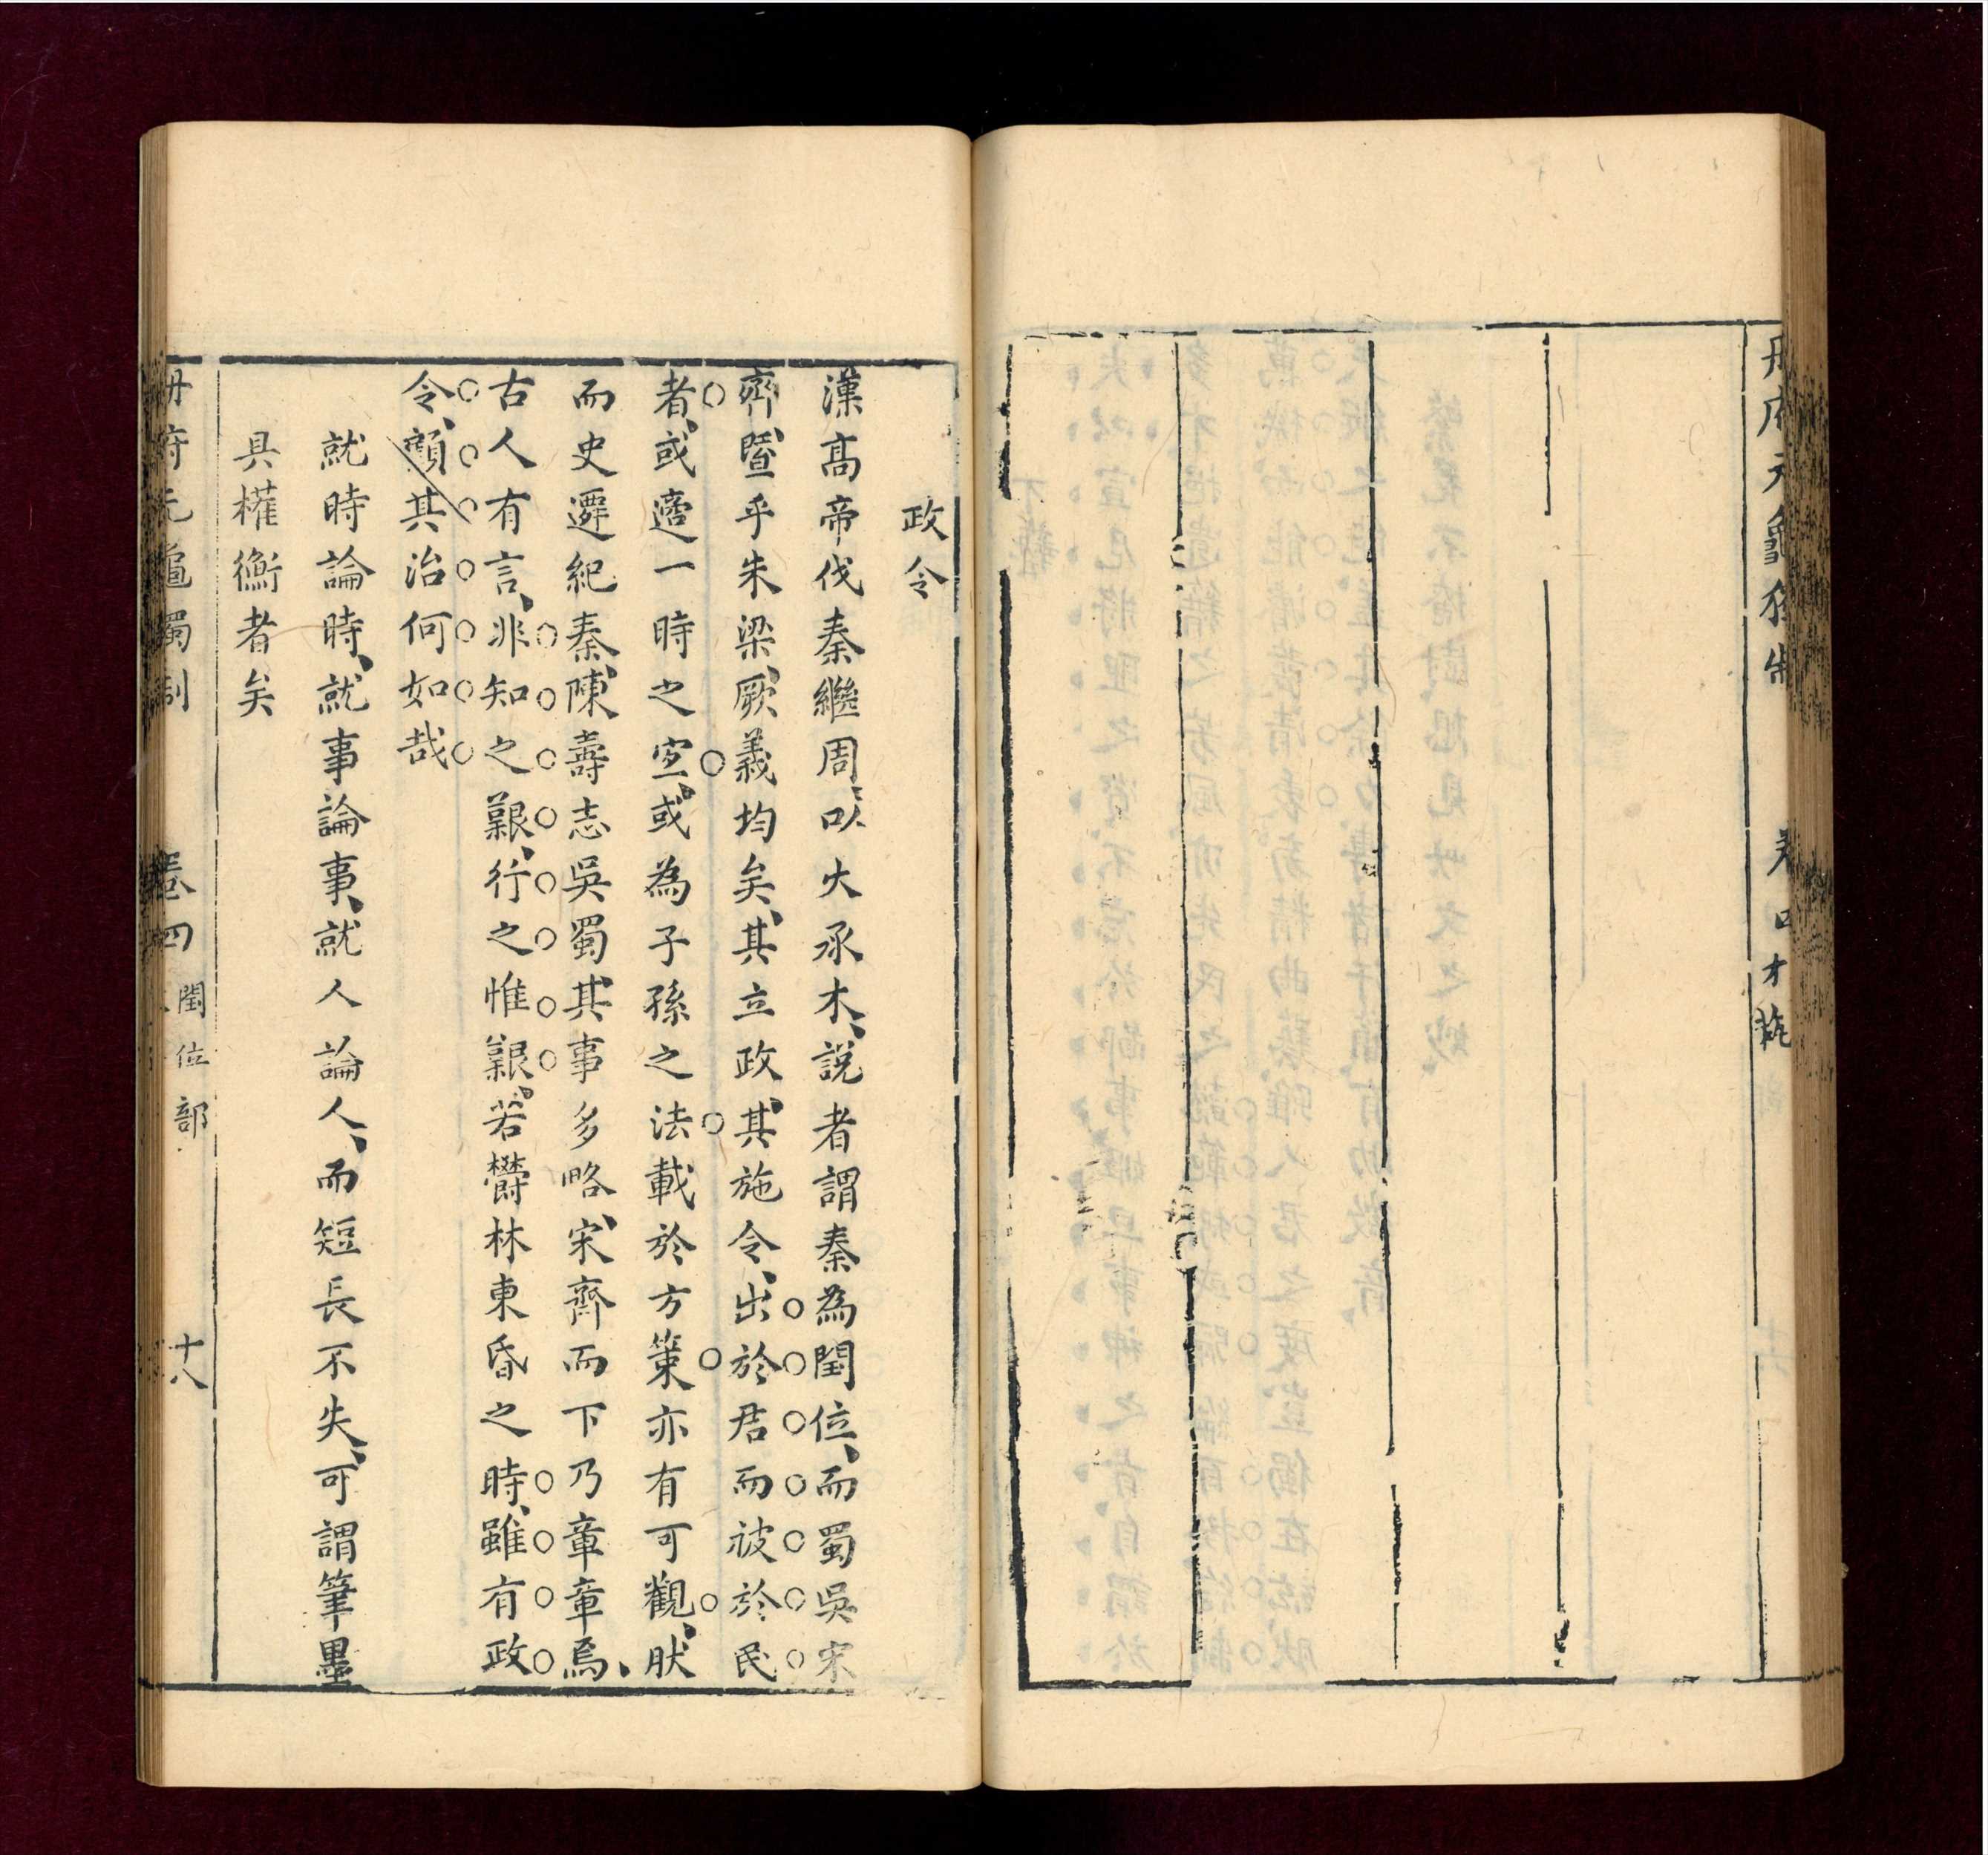 政令
漢高帝伐秦繼周以火承木説者謂秦為閏位而蜀吳宋
齊暨乎朱梁厥義均矣其立政其施令出於君而被於民
者或適一時之宜或為子孫之法載於方策亦有可觀肰
而史遷紀秦陳壽志吳蜀其事多略宋齊而下乃章章焉
古人有言非知之艱行之惟艱若欝林東昏之時雖有政
令顧其治何如哉
就時論時就事論事就人論人而短長不失可謂筆墨
具權衡者矣
冊府元龜獨制 卷四 閏位部 十八